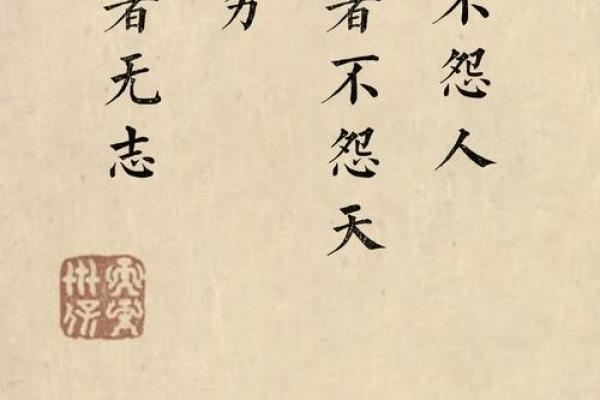 不怨人
者不怨天
者无志